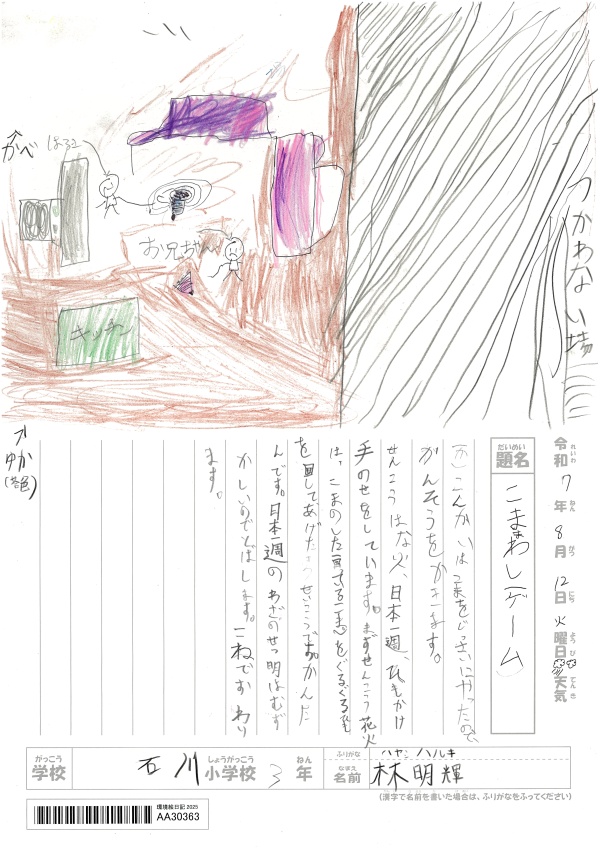 かべ
はるき
お兄ちゃん
キッチン
つかわない場
ゆか
(茶色)
令和7年8月12日火曜日天気
れいわ ねん がつ にち ようび てんき
だいめい
題名 こままわし(ゲーム)
こんかいはこまをじっさいにやったので
かんそうをかきます。
せんこうはな火、日本一週、ひもかけ
手のせをしています。まずせんこう花火
は、こまのした回する
をぐるぐる
を回してあげたらせいこうです。かんた
んです。日本一週のわざのせつ明はむず
かしいのでとばします。
ます。
がっこう
学校 石川小学校 3年
しょうがっこう ねん
ふりがな ハヤシ ハルキ
なまえ
名前 林明輝
(漢字で名前を書いた場合は、ふりがなをふってください)
環境絵日記 2025
AA30363